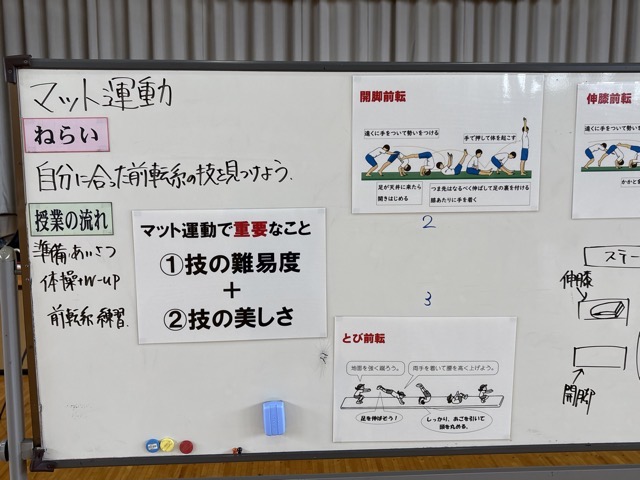 マット運動
ねらい
自分に合った前転系の技を見つけよう.
授業の流れ
準備・あいさつ
体操+W-up
前転系練習.
マット運動で重要なこと
①技の難易度
+
②技の美しさ
開脚前転
遠くに手をついて勢いをつける
手で押して体を起こす
足が天井に来たら
開きはじめる
つま先はなるべく伸ばして足の裏を付ける
膝あたりに手を着く
2
3
とび前転
地面を強く蹴ろう。
両手を着いて腰を高く上げよう。
足を伸ばそう!
しっかり、あごを引いて
頭を丸める。
伸膝前転
遠くに手をついて勢いを
かかとを
ステー
伸膝
開脚